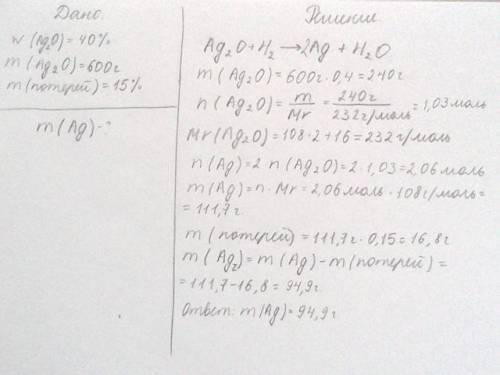 Дано:
w (Ag₂O) = 40%
m (Ag₂O) = 600г
m (потерей) = 15%
m (Ag) - ?
Решение
Ag₂O + H₂ → 2Ag + H₂O
m (Ag₂O) = 600г · 0,4 = 240г
n (Ag₂O) = m/Mr = 240г/232г/моль = 1,03 моль
Mr (Ag₂O) = 108 · 2 + 16 = 232 г/моль
n (Ag) = 2 · n (Ag₂O) = 2 · 1,03 = 2,06 моль
m (Ag) = n · Mr = 2,06 моль · 108 г/моль =
= 111,7 г.
m (потерей) = 111,7г · 0,15 = 16,8г
m (Ag₂) = m (Ag) - m (потерей) =
= 111,7 - 16,8 = 94,9г.
Ответ: m (Ag) = 94,9г.